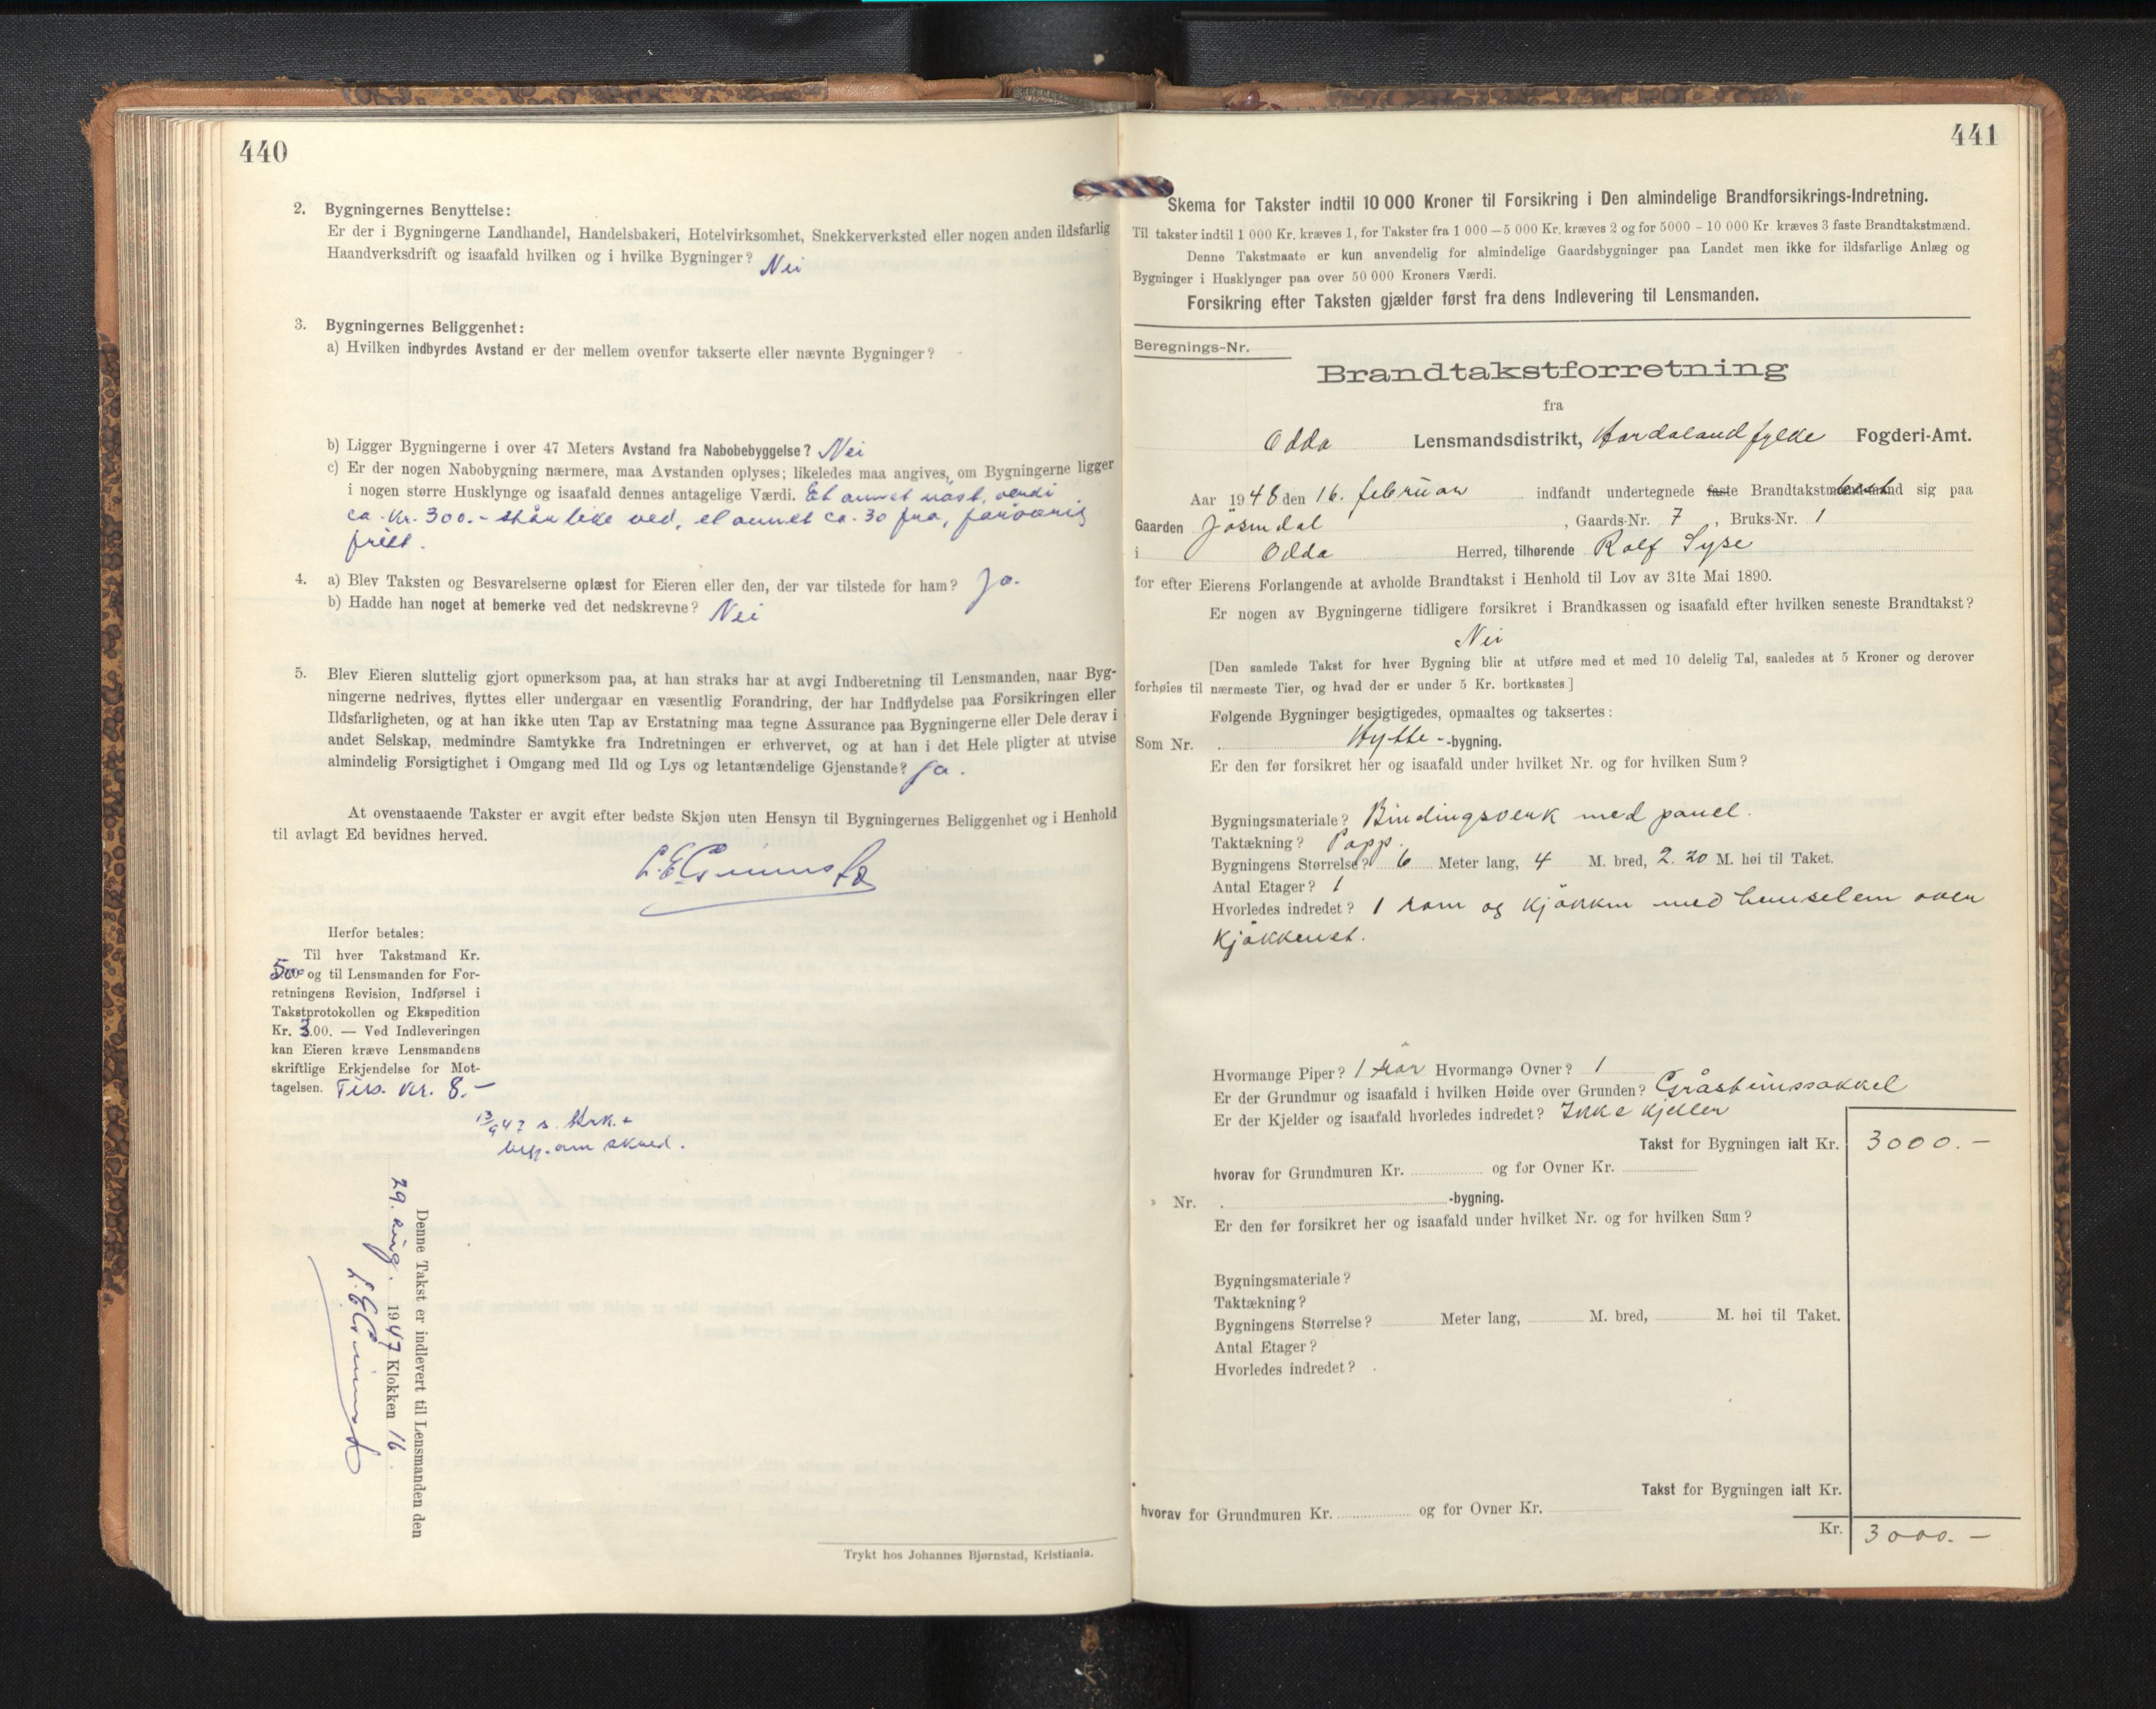 440
2. Bygningernes Benyttelse:
Er der i Bygningerne Landhandel, Handelsbakeri, Hotelvirksomhet, Snekkerverksted eller nogen anden ildsfarlig
Haandverksdrift og isaafald hvilken og i hvilke Bygninger? Nei
3. Bygningernes Beliggenhet:
a) Hvilken indbyrdes Avstand er der mellem ovenfor takserte eller nævnte Bygninger?
b) Ligger Bygningerne i over 47 Meters Avstand fra Nabobebyggelse? Nei
c) Er der nogen Nabobygning nærmere, maa Avstanden oplyses; likeledes maa angives, om Bygningerne ligger
i nogen større Husklynge og isaafald dennes antagelige Værdi. Et annet nast, verdi
ca. Kr. 300.- står like ved, et annet ca. 30 fra, forøvrig
fritt.
4. a) Blev Taksten og Besvarelserne oplæst for Eieren eller den, der var tilstede for ham? Ja.
b) Hadde han noget at bemerke ved det nedskrevne? Nei
5. Blev Eieren sluttelig gjort opmerksom paa, at han straks har at avgi Indberetning til Lensmanden, naar Byg-
ningerne nedrives, flyttes eller undergaar en væsentlig Forandring, der har Indflydelse paa Forsikringen eller
Ildsfarligheten, og at han ikke uten Tap av Erstatning maa tegne Assurance paa Bygningerne eller Dele derav i
andet Selskap, medmindre Samtykke fra Indretningen er erhvervet, og at han i det Hele pligter at utvise
almindelig Forsigtighet i Omgang med Ild og Lys og letantændelige Gjenstande? Ja.
At ovenstaaende Takster er avgit efter bedste Skjøn uten Hensyn til Bygningernes Beliggenhet og i Henhold
til avlagt Ed bevidnes herved.
Herfor betales:
Til hver Takstmand Kr.
5.00 og til Lensmanden for For-
retningens Revision, Indførsel i
Takstprotokollen og Ekspedition
Kr. 3.00. — Ved Indleveringen
kan Eieren kræve Lensmandens
skriftlige Erkjendelse for Mot-
tagelsen. Tils. Kr. 8.-
13/9 47 s.
Denne Takst er indlevert til Lensmanden den
29. aug. 1947 Klokken 16.
Trykt hos Johannes Bjørnstad, Kristiania.
441
Skema for Takster indtil 10 000 Kroner til Forsikring i Den almindelige Brandforsikrings-Indretning.
Til takster indtil 1 000 Kr. kræves 1, for Takster fra 1 000—5 000 Kr. kræves 2 og for 5000 - 10 000 Kr. kræves 3 faste Brandtakstmænd.
Denne Takstmaate er kun anvendelig for almindelige Gaardsbygninger paa Landet men ikke for ildsfarlige Anlæg og
Bygninger i Husklynger paa over 50 000 Kroners Værdi.
Forsikring efter Taksten gjælder først fra dens Indlevering til Lensmanden.
Beregnings-Nr.
Brandtakstforretning
fra
Odda Lensmandsdistrikt, Hordaland fylke Fogderi-Amt.
Aar 1948 den 16. februar indfandt undertegnede faste Brandtakstmænd sig paa
Gaarden Jösendal, Gaards-Nr. 7, Bruks-Nr. 1
i Odda Herred, tilhørende Rolf Syse
for efter Eierens Forlangende at avholde Brandtakst i Henhold til Lov av 31te Mai 1890.
Er nogen av Bygningerne tidligere forsikret i Brandkassen og isaafald efter hvilken seneste Brandtakst?
Nei
[Den samlede Takst for hver Bygning blir at utføre med et med 10 delelig Tal, saaledes at 5 Kroner og derover
forhøies til nærmeste Tier, og hvad der er under 5 Kr. bortkastes.]
Følgende Bygninger besigtigedes, opmaaltes og taksertes:
Som Nr. Hytte--bygning.
Er den før forsikret her og isaafald under hvilket Nr. og for hvilken Sum?
Bygningsmateriale? Bindingsverk med panel.
Taktækning? Papp.
Bygningens Størrelse? 6 Meter lang, 4 M. bred, 2.20 M. høi til Taket.
Antal Etager? 1
Hvorledes indredet? 1 rom og kjökken med hemselem over
kjøkkenet.
Hvormange Piper? 1 rör Hvormange Ovner? 1
Er der Grundmur og isaafald i hvilken Høide over Grunden? Gråsteinssokkel
Er der Kjelder og isaafald hvorledes indredet? Ikke kjeller
Takst for Bygningen ialt Kr. 3000.-
hvorav for Grundmuren Kr. og for Ovner Kr.
» Nr. -bygning.
Er den før forsikret her og isaafald under hvilket Nr. og for hvilken Sum?
Bygningsmateriale?
Taktækning?
Bygningens Størrelse? Meter lang, M. bred, M. høi til Taket.
Antal Etager?
Hvorledes indredet?
Takst for Bygningen ialt Kr.
hvorav for Grundmuren Kr. og for Ovner Kr.
Kr. 3000.-